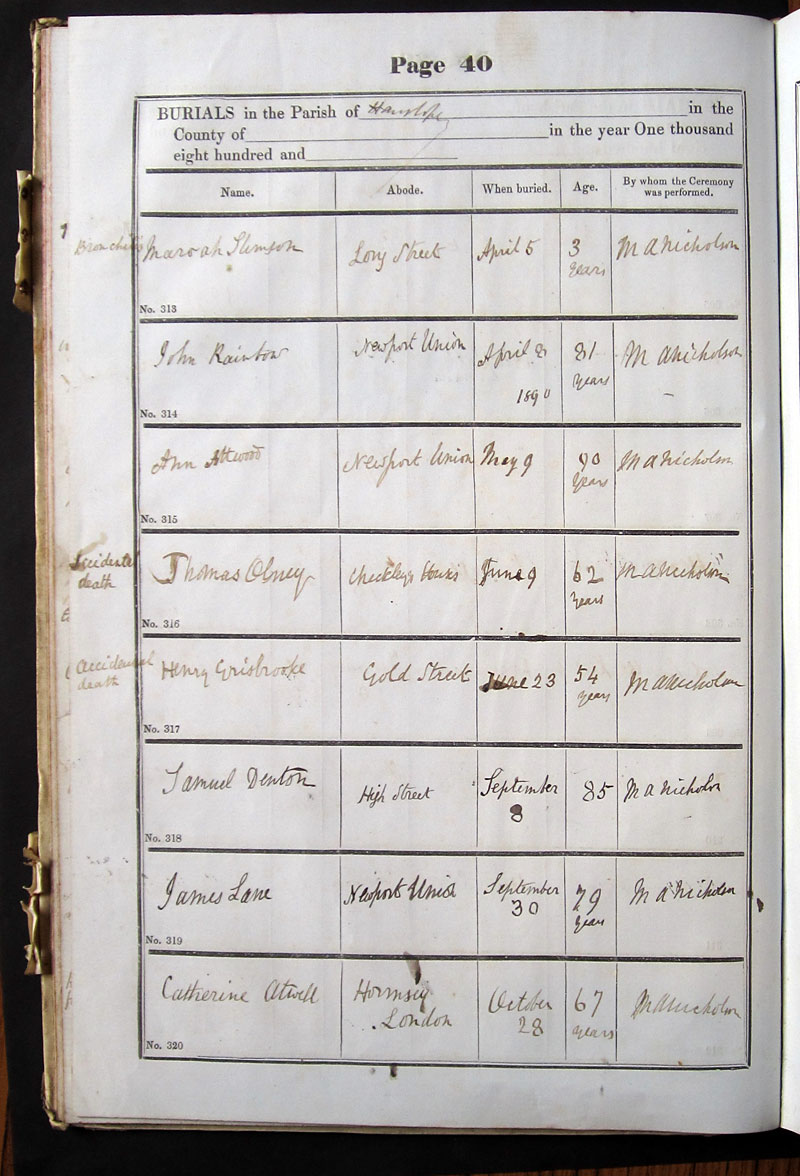 Page 40
BURIALS in the Parish of Hanslope in the
County of in the year One thousand
eight hundred and
Name. Abode. When buried. Age. By whom the Ceremony was performed.
Bronchitis Slimson Long Street April 5 3 years M A Nicholson
No. 313
John Rainbow Newport Union April 8 1890 81 years M A Nicholson
No. 314
Ann Attwood Newport Union May 9 90 years M A Nicholson
No. 315
Accidental death Thomas Olney June 9 62 years M A Nicholson
No. 316
Accidental death Henry Grisbrooke Gold Street June 23 54 years M A Nicholson
No. 317
Samuel Denton High Street September 8 85 M A Nicholson
No. 318
James Lane Newport Union September 30 79 years M A Nicholson
No. 319
Catherine Atwell Hornsey London October 28 67 years M A Nicholson
No. 320